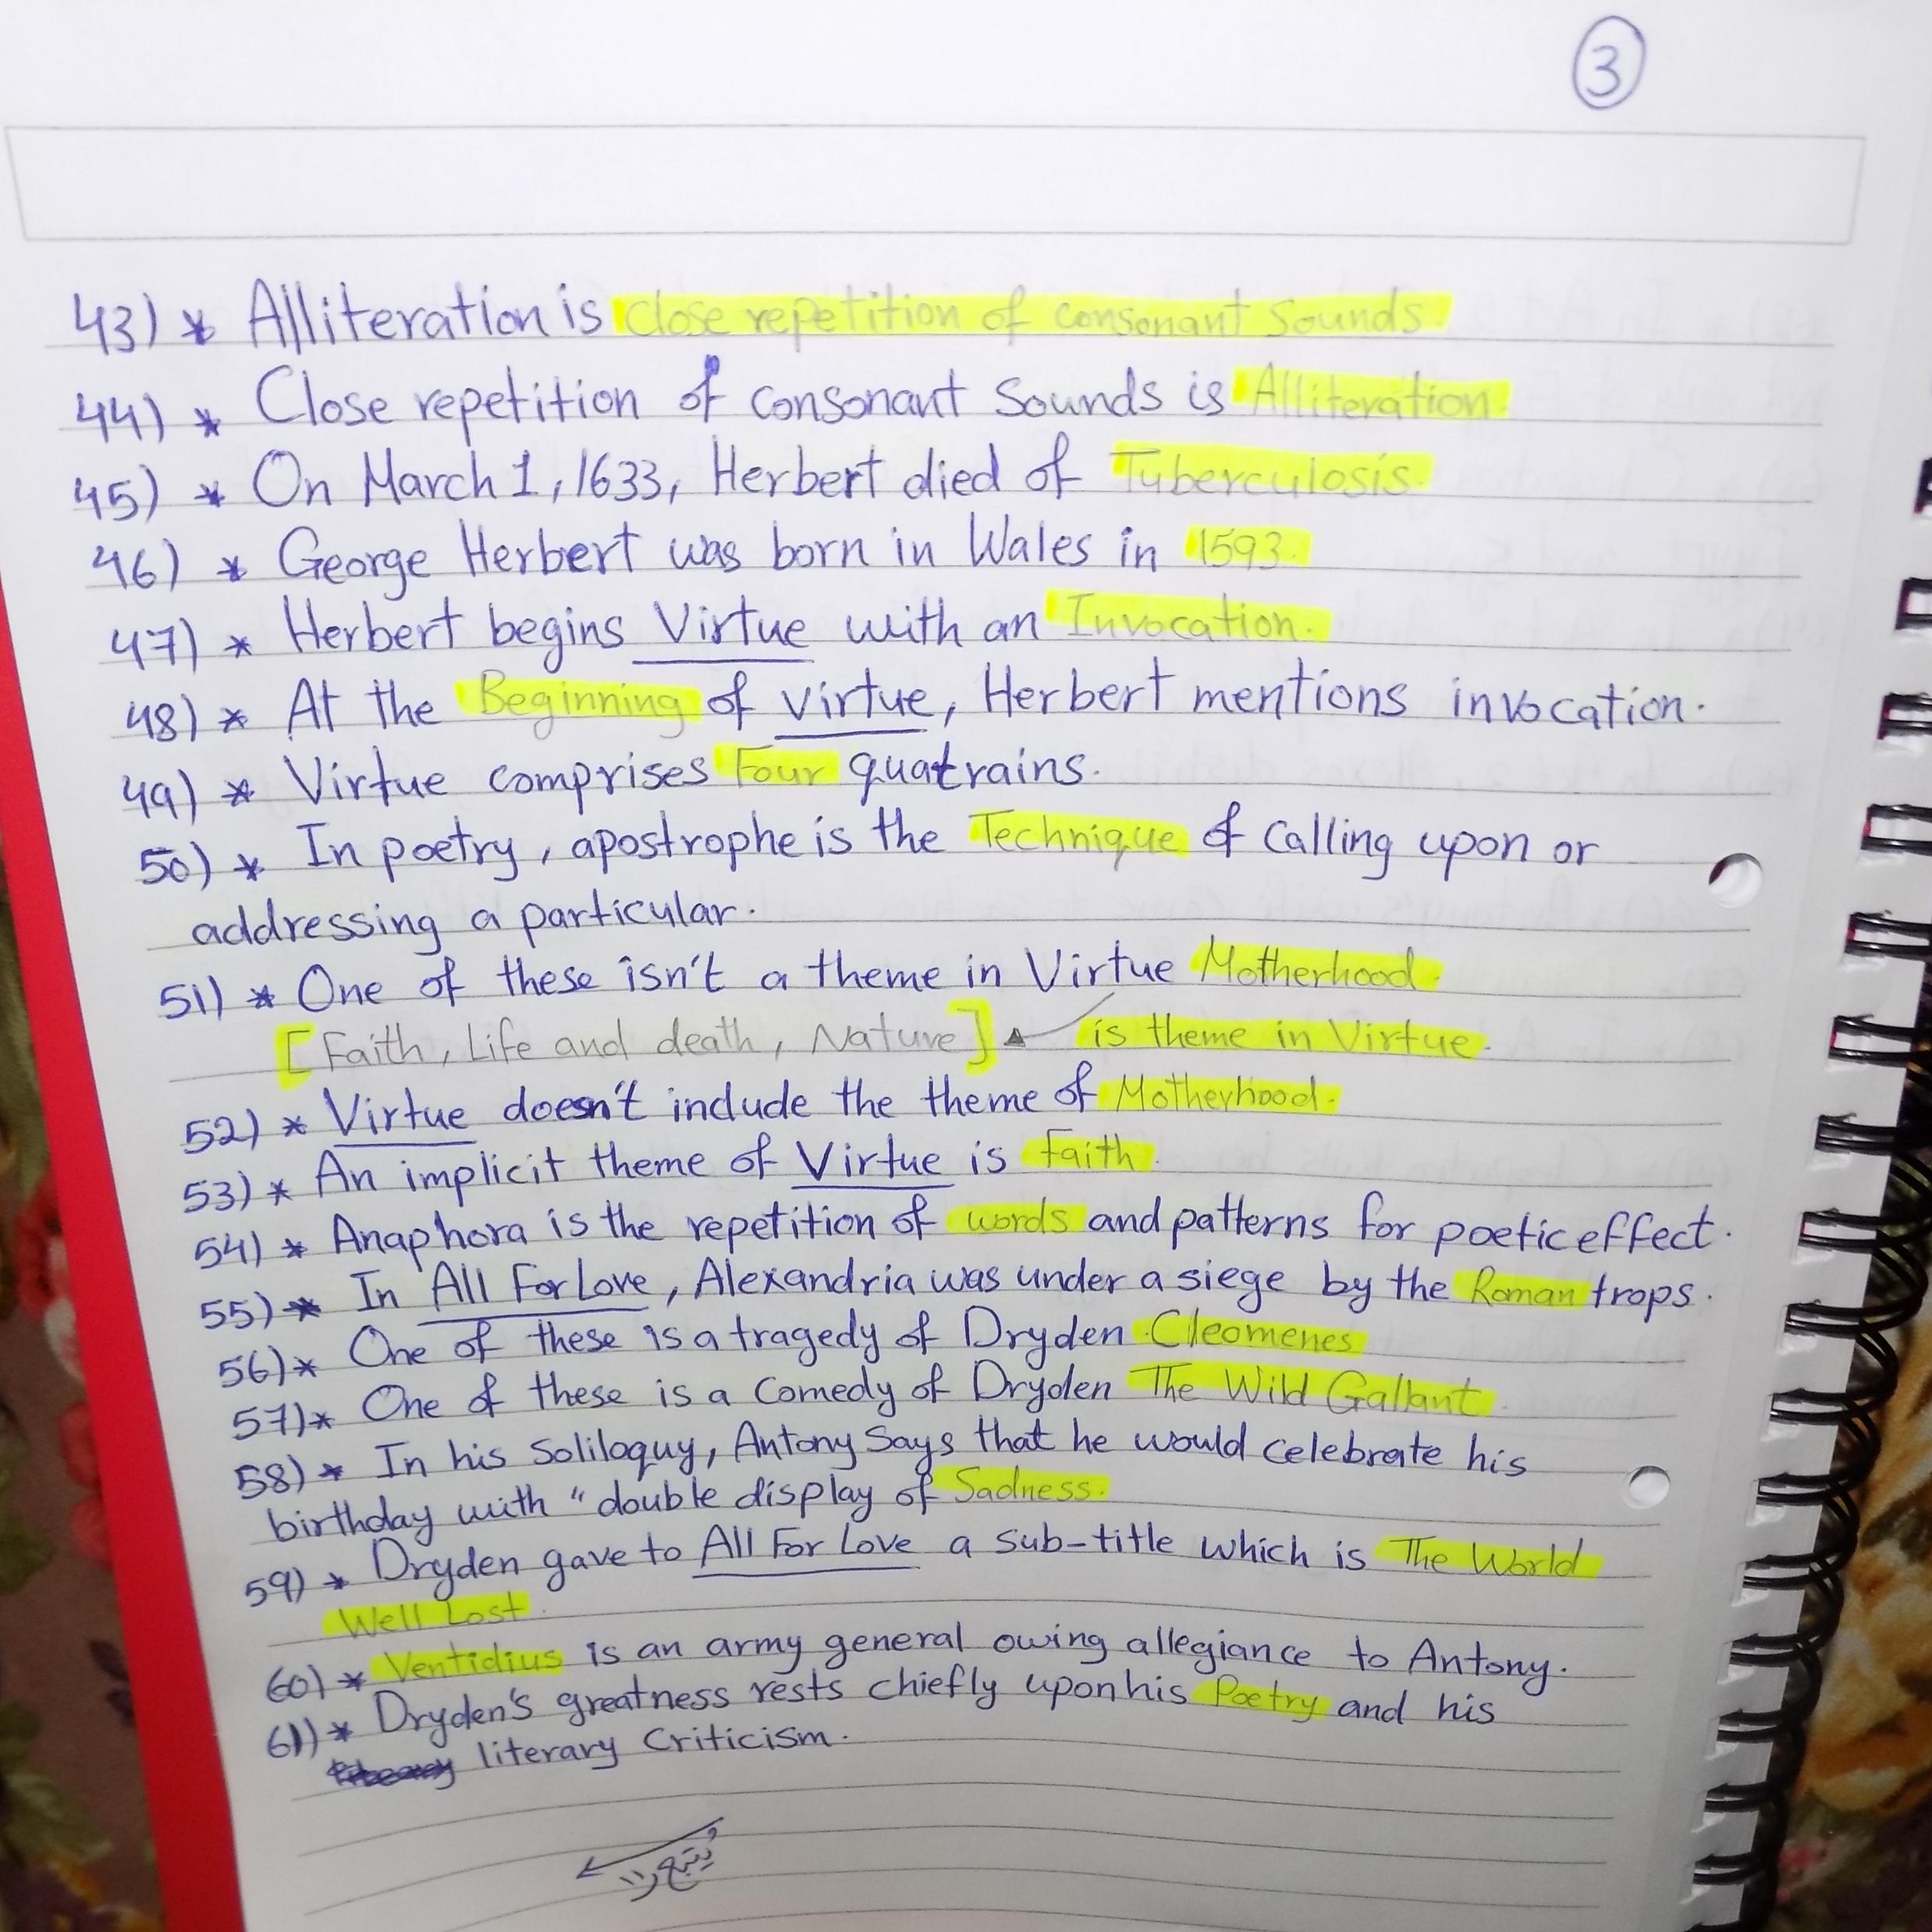 3
43) * Alliteration is close repetition of consonant Sounds.
44) * Close repetition of consonant Sounds is Alliteration.
45) * On March 1, 1633, Herbert died of Tuberculosis.
46) * George Herbert was born in Wales in 1593.
47) * Herbert begins Virtue with an Invocation.
48) * At the Beginning of Virtue, Herbert mentions invocation.
49) * Virtue comprises Four quatrains.
50) * In poetry, apostrophe is the Technique of calling upon or
addressing a particular.
51) * One of these isn't a theme in Virtue Motherhood.
[Faith, Life and death, Nature] is theme in Virtue.
52) * Virtue doesn't include the theme of Motherhood.
53) * An implicit theme of Virtue is Faith.
54) * Anaphora is the repetition of words and patterns for poetic effect.
55) * In All For Love, Alexandria was under a siege by the Roman trops.
56) * One of these is a tragedy of Dryden Cleomenes
57) * One of these is a Comedy of Dryden The Wild Gallant.
58) * In his Soliloquy, Antony Says that he would celebrate his
birthday with "double display of Sadness.
59) * Dryden gave to All For Love a sub-title which is The World
Well Lost.
60) * Ventidius is an army general owing allegiance to Antony.
61) * Dryden's greatness rests chiefly upon his Poetry and his
literary Criticism.
يتبع